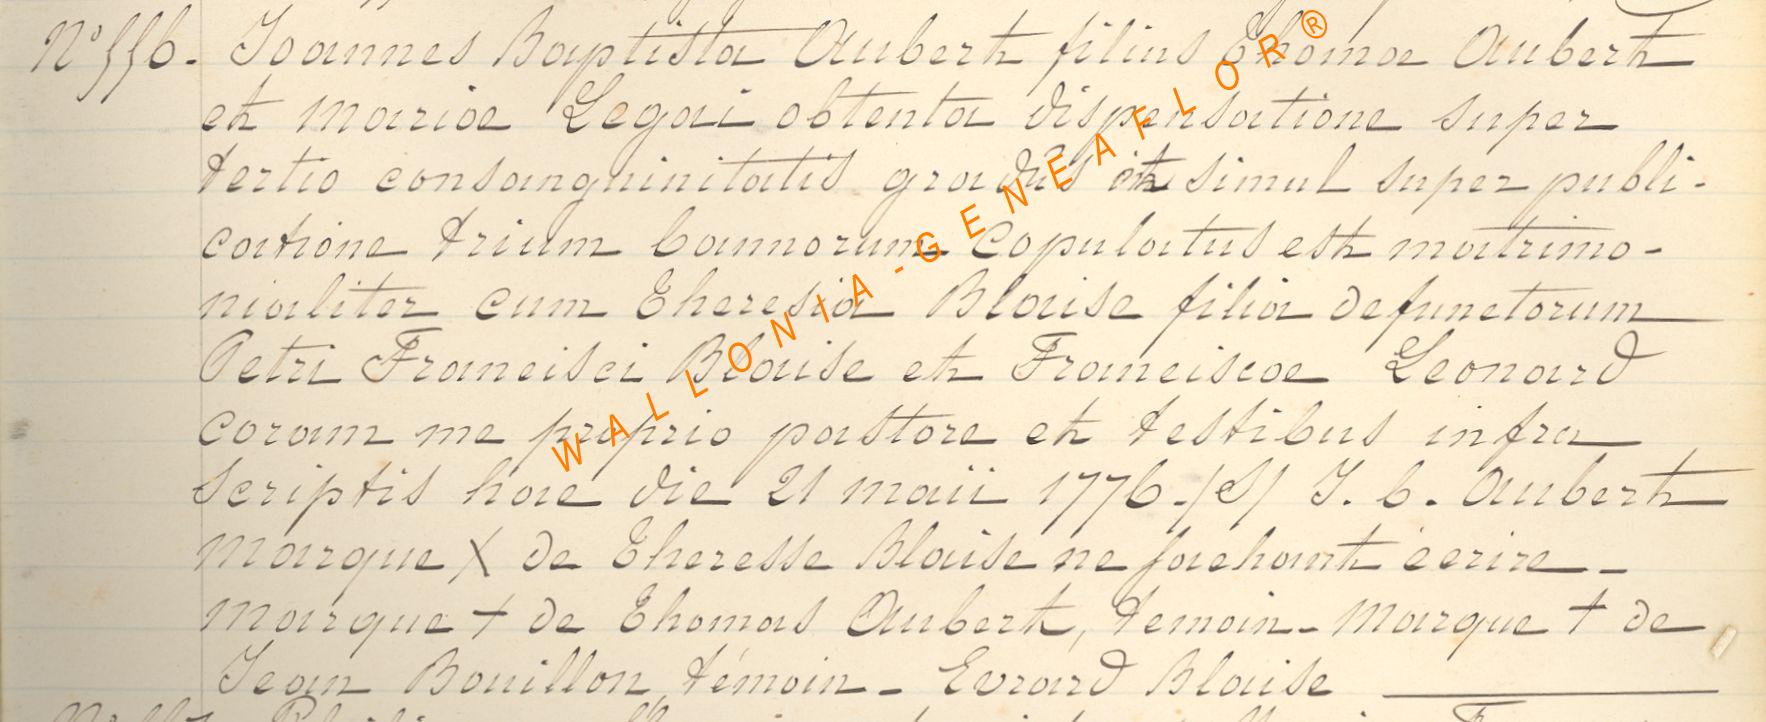 N° 556. Joannes Baptista Aubert filius Thoma Aubert
et Mariae Legai obtenta dispensatione super
tertio consanguinitatis gradus et simul super publi-
catione trium bannorum copulatus est matrimo-
nialiter cum Theresia Blaise filia defunctorum
Petri Francisci Blaise et Franciscae Leonard
coram me proprio pastore et testibus infra
scriptis hac die 21 maii 1776. /S/ J. b. Aubert
Marque X de Theresse Blaise ne sachant écrire -
Marque + de Thomas Aubert, temoin - Marque + de
Jean Bouillon, témoin - Evrard Blaise
WALLONIA-GENEAFLOR®